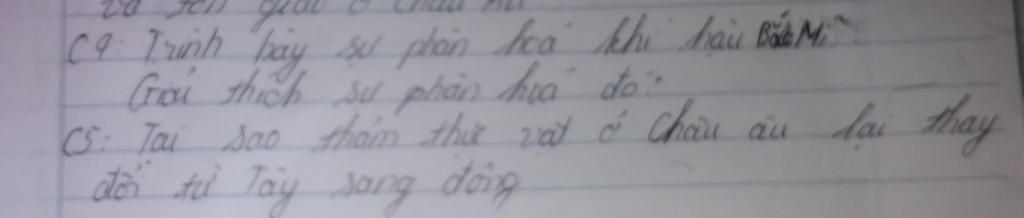 và tôn giáo ở châu Âu
C4: Trình bày sự phân hoá khí hậu Bắc Mĩ
Giải thích sự phân hoá đó?
C5: Tại sao thảm thực vật ở Châu âu lại thay
đổi từ Tây sang đông